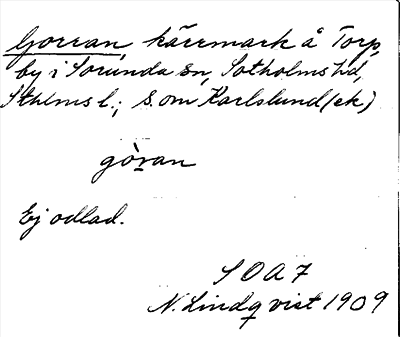 Gorran, kärrmark å Torp,
by i Sorunda sn, Sotholms hd,
Sthlms l.; S. om Karlslund (ek)
gòran
Ej odlad.
SOA7
N. Lindqvist 1909